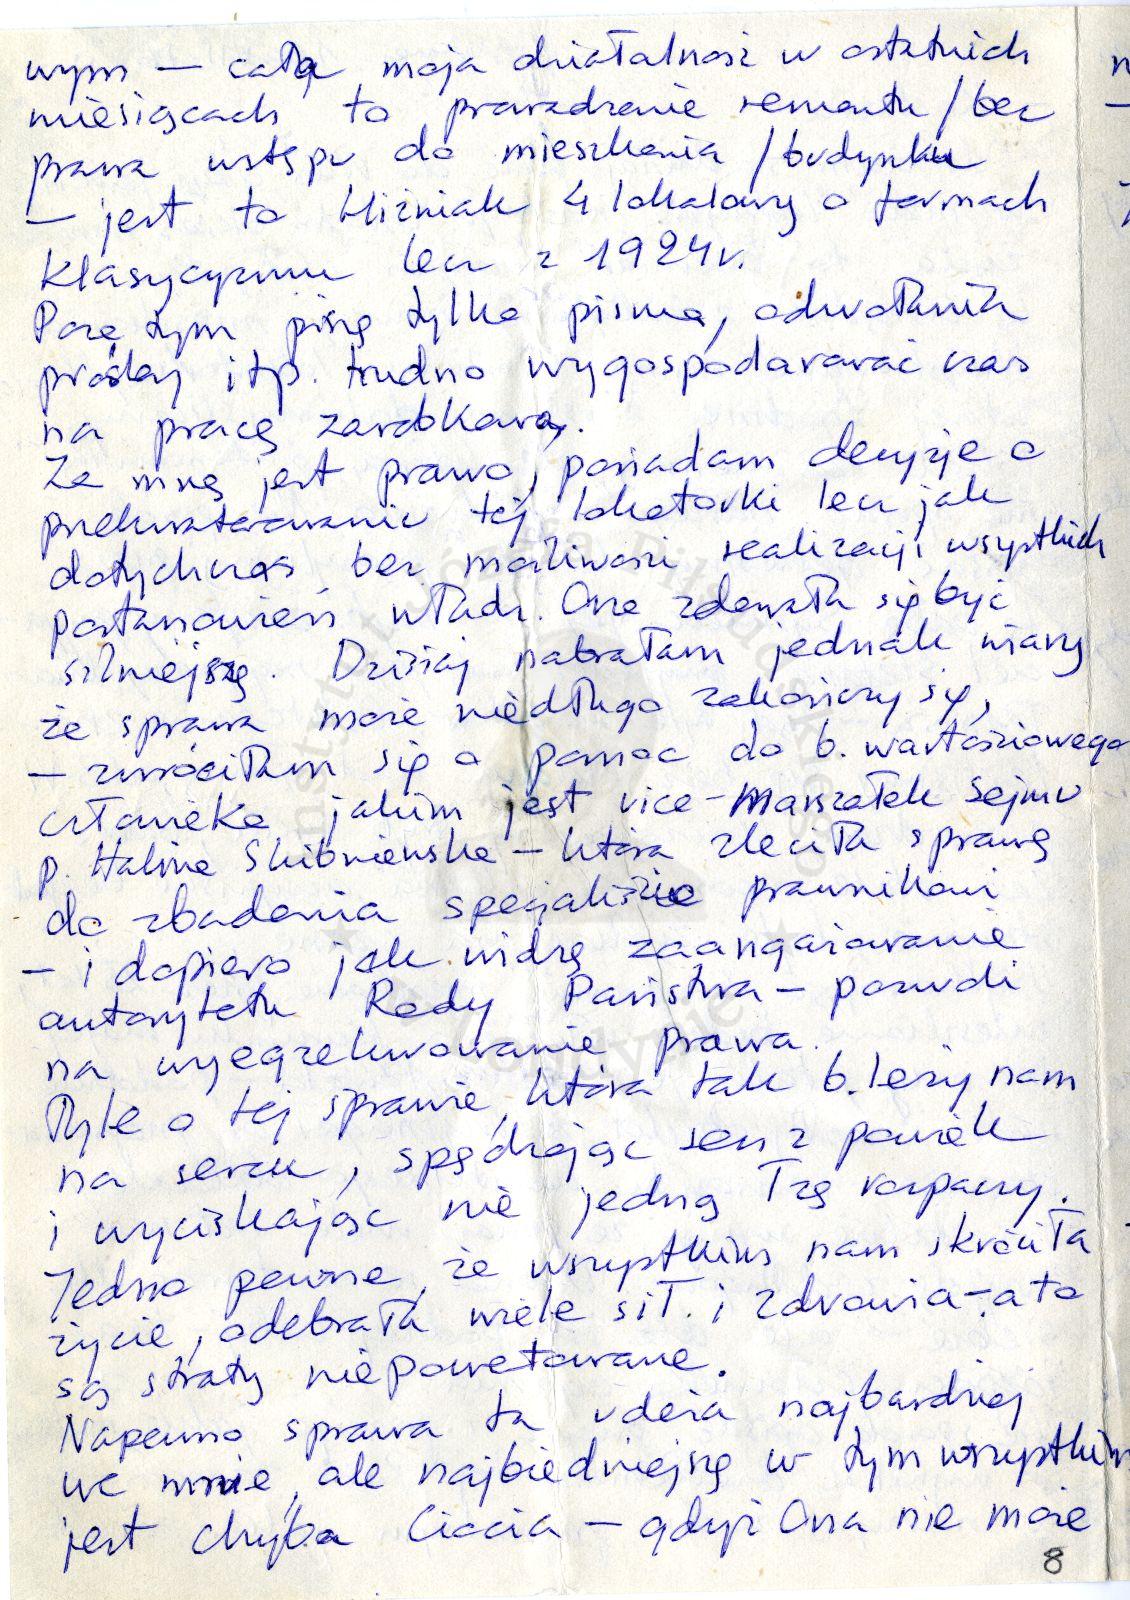 wym — całą moja działalność w ostatnich
miesiącach to prowadzenie remontu /bez
prawa wstępu do mieszkania /budynku
— jest to bliźniak 4 lokalowy o formach
klasycyzmu lecz z 1924r.
Poza tym piszę tylko pisma, odwołania
prośby itp. trudno wygospodarować czas
na pracę zarobkową.
Ze mną jest prawo, posiadam decyzje o
przekwaterowaniu tej lokatorki lecz jak
dotychczas bez możliwości realizacji wszystkich
postanowień władz. Ona zdawała się być
silniejszą. Dzisiaj nabrałam jednak wiary
że sprawa może niedługo zakończy się,
— zwróciłam się o pomoc do b. wartościowego
człowieka jakim jest vice-Marszałek Sejmu
p. Halina Skibniewska — która zleciła sprawę
do zbadania specjaliście prawnikowi
— i dopiero jak widzę zaangażowanie
autorytetu Rady Państwa — pozwoli
na wyegzekwowanie prawa.
Tyle o tej sprawie, która tak b. leży nam
na sercu, spędzając sen z powiek
i wyciskając nie jedną łzę rozpaczy.
Jedno pewne, że wszystkim nam skróciła
życie, odebrała wiele sił. i zdrowia —, a to
są straty niepowetowane.
Napewno sprawa ta uderza najbardziej
we mnie, ale najbiedniejszą w tym wszystkim
jest chyba Ciocia — gdyż Ona nie może
8
Instytut Józefa Piłsudskiego
Londynie